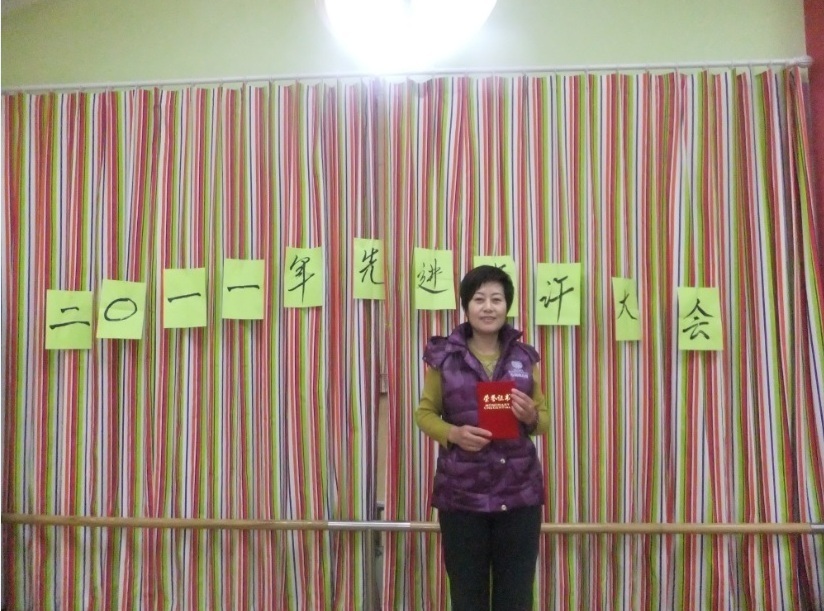 二〇一一年先进 评大会
荣誉证书